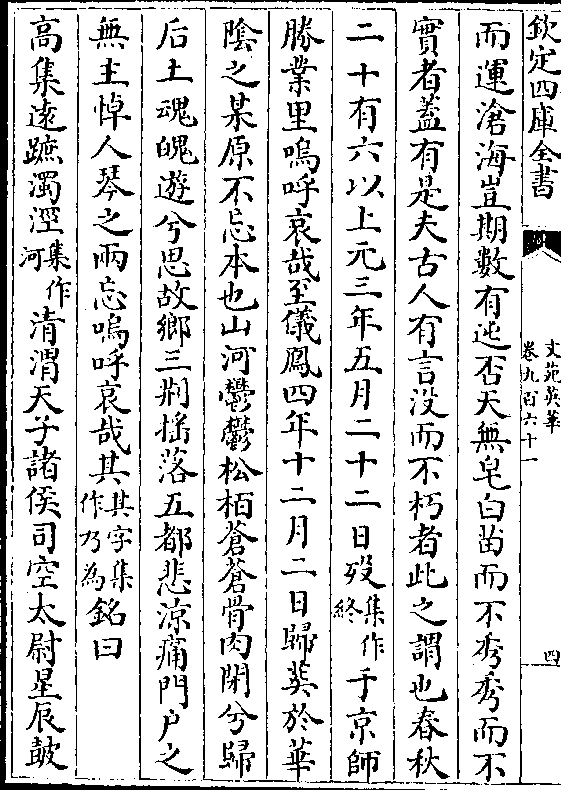 欽定四庫全書
文苑英華
卷九百六十一
四
而運滄海豈期數有迍否天無皂白苗而不秀秀而不
實者蓋有是夫古人有言没而不朽者此之謂也春秋
二十有六以上元三年五月二十二日歿集作終于京師
勝業里嗚呼哀哉至儀鳳四年十二月二日歸葬於華
隂之某原不忘本也山河鬱鬱松栢蒼蒼骨肉閉兮歸
后土魂魄遊兮思故鄉三荆揺落五都悲涼痛門户之
無主悼人琴之兩忘嗚呼哀哉其其字集作乃為銘曰
高集作遠蹠濁涇集作河清渭天子諸侯司空太尉星辰皷